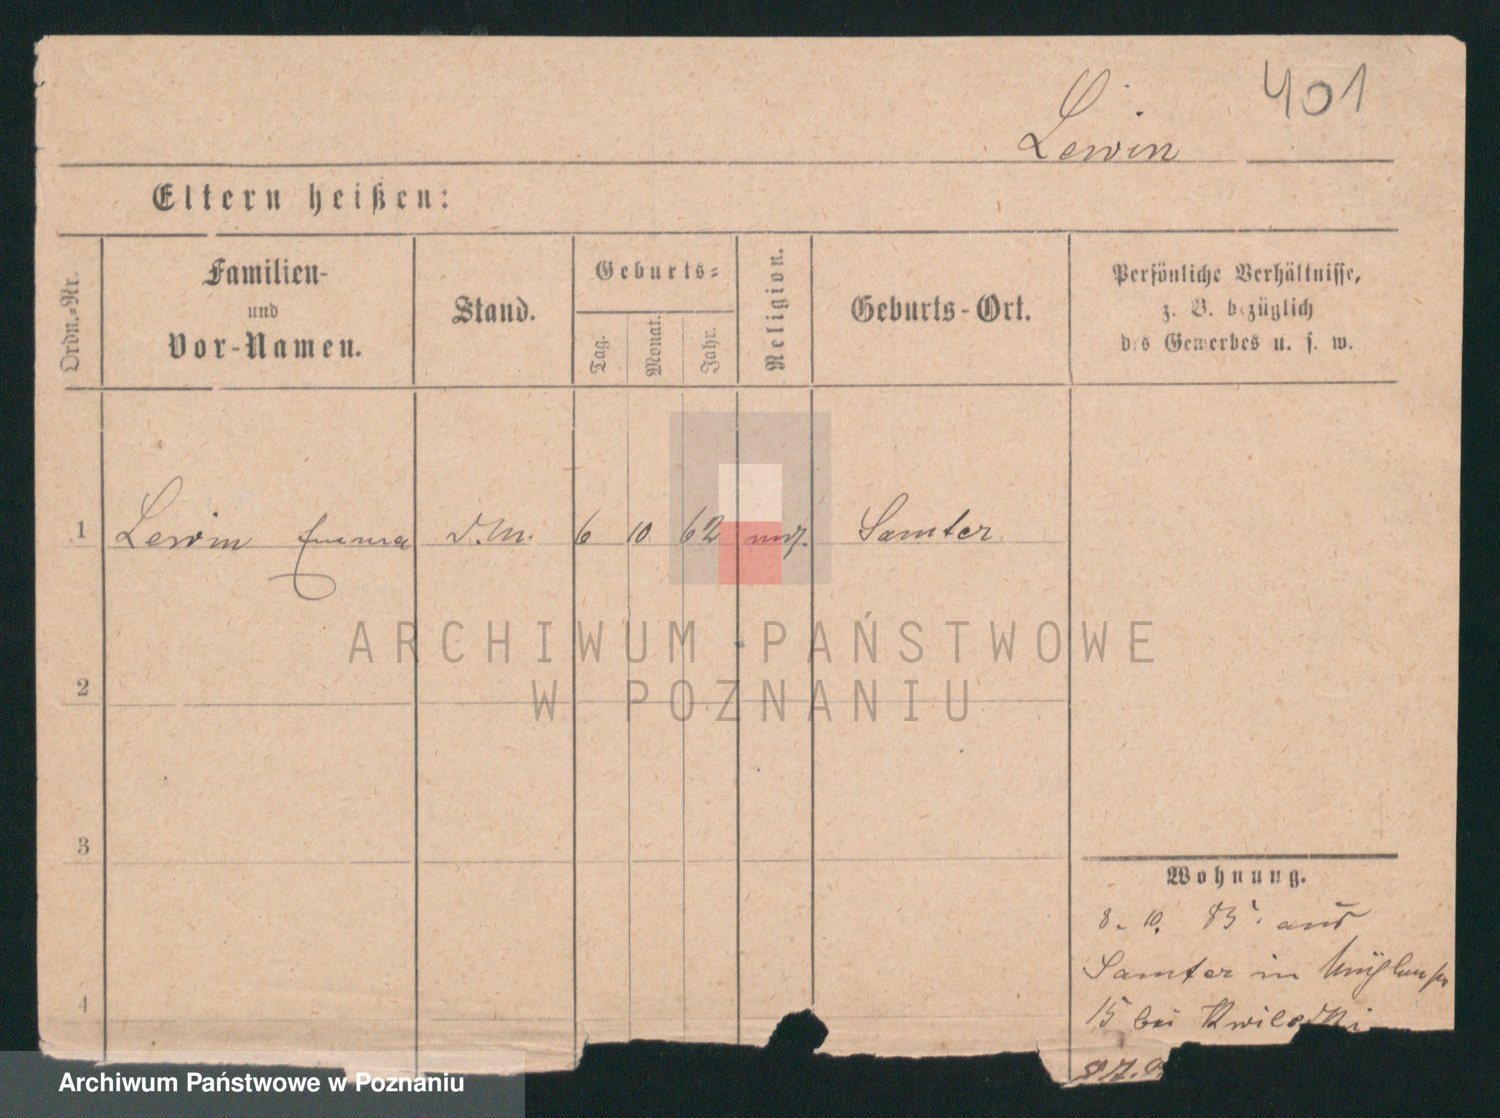 401
Lewin
Eltern heißen:
Ordn.=Nr.
Familien-
und
Vor-Namen.
Stand.
Geburts=
Tag.
Monat.
Jahr.
Religion.
Geburts-Ort.
Persönliche Verhältnisse,
z. B. bezüglich
des Gewerbes u. s. w.
1 Lewin Emma d.M. 6 10 62 Samter
ARCHIWUM PAŃSTWOWE
W POZNANIU
2
3
4
Wohnung.
8. 10. 85. aus
Samter in
15 bei
Archiwum Państwowe w Poznaniu